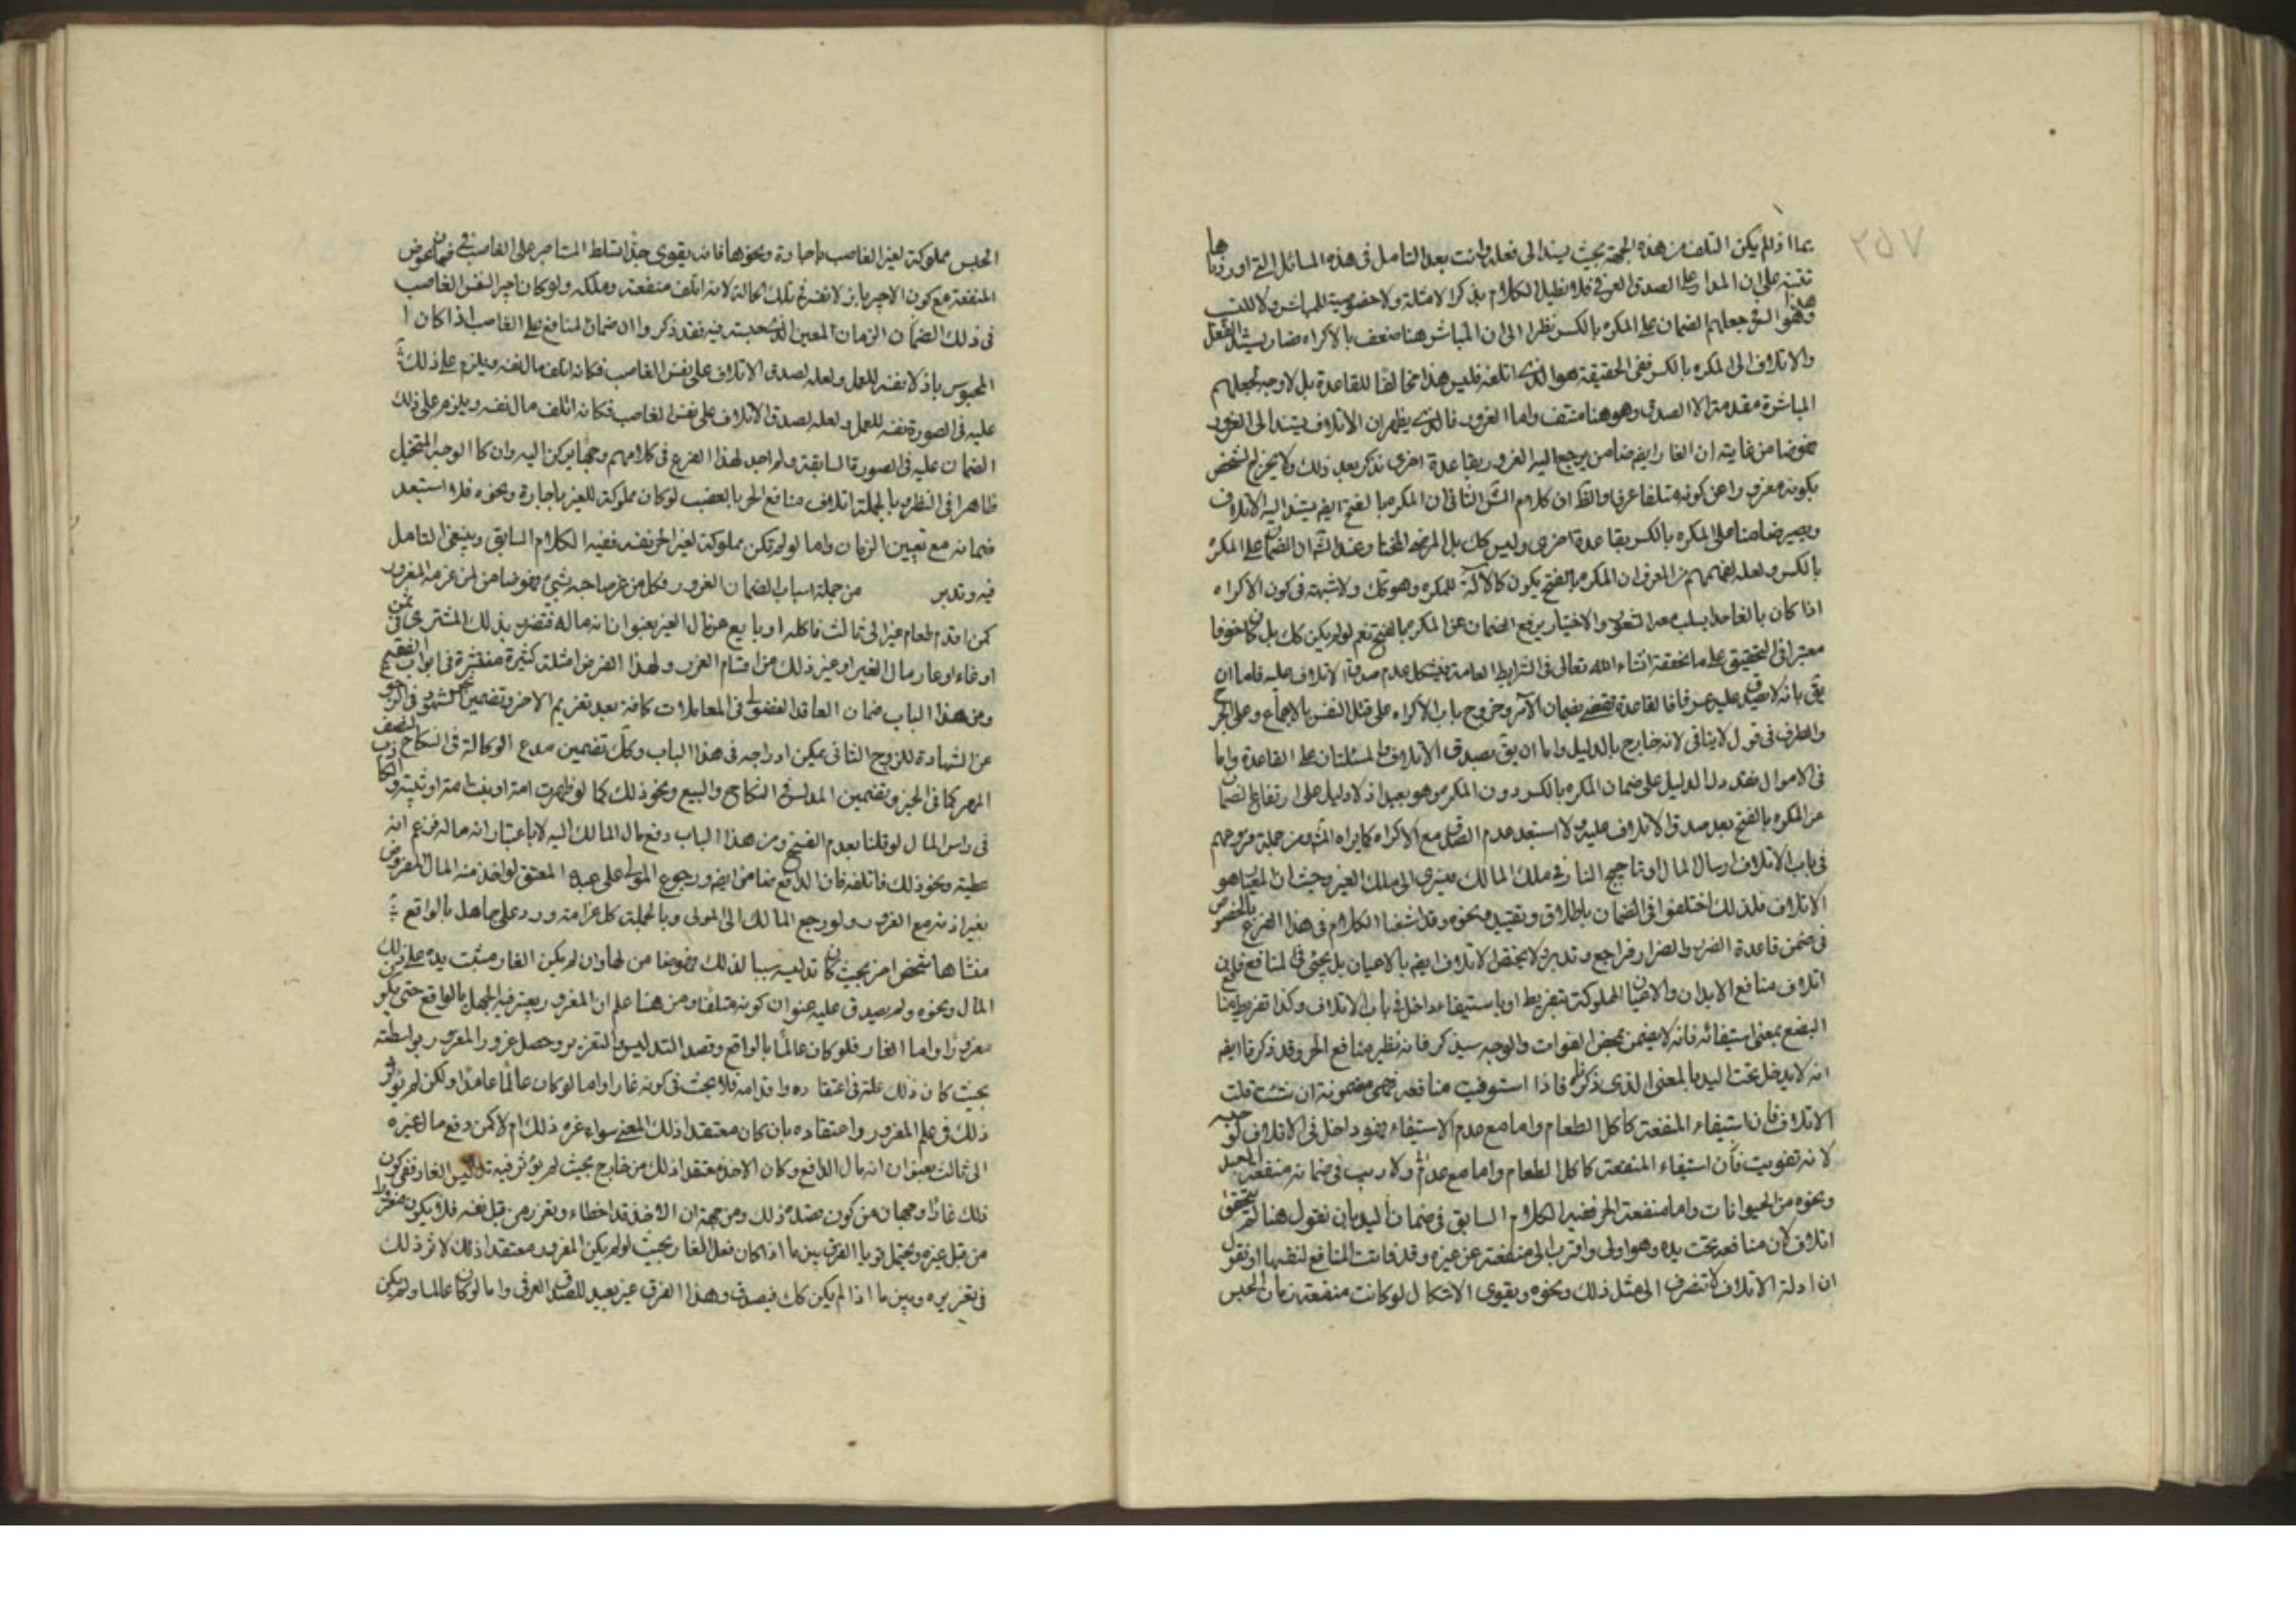 ٢٥٧
عما اذا لم يكن التلف من هذه الجهة بحيث يسند الى فعله وانت بعد التامل فى هذه المسائل التى اوردناها
تتنبه على ان المدار على الصدق العرفى فلا نطيل الكلام بذكر الامثلة ولا خصوصية للمباشر ولا للسبب
وهذا هو السر جعلهم الضمان على المكره بالكسر نظرا الى ان المباشر هنا ضعف بالاكراه فصار يسند الفعل
والاتلاف الى المكره بالكسر ففى الحقيقة هو الذى اتلفه فليس هذا مخالفا للقاعدة بل لا وجه لجعلهم
المباشرة مقدمة الا الصدق وهو هنا منتف واما الغرور فالذى يظهر ان الاتلاف يستند الى المغرور
فهو ضامن غايته ان الغار ايضا ضامن يرجع اليه المغرور بقاعدة اخرى نذكر بعد ذلك ولا يخرج الشخص
بكونه مغرورا عن كونه متلفا عرفا والظ ان كلام الش الثانى ان المكره بالفتح ايض يستند اليه الاتلاف
ويصير ضامنا على المكره بالكسر بقاعدة اخرى وليس كك بل المرضى المختار وعند الش ان الضمان على المكره
بالكسر ولعله لفهمهم من العرف ان المكره بالفتح يكون كالآلة للمكره وهو كك ولا شبهة فى كون الاكراه
اذا كان بالغا حدا يسلب معه الشعور والاختيار يرفع الضمان عن المكره بالفتح نعم لو لم يكن كك بل كان خوفا
معتبرا فى التحقيق على ما نحققه انشاء الله تعالى فى الشرايط العامة فيشكل عدم صدق الاتلاف عليه فاما ان
يق بانه لا يصدق عليه عرفا فالقاعدة تقتضى بضمان الآمر وخروج باب الاكراه على قتل النفس بالاجماع وعلى الجرح
والطرف فى قول لا ينافى لانه خارج بالدليل واما ان يق بصدق الاتلاف فالمسئلتان على القاعدة واما
فى الاموال فقد دل الدليل على ضمان المكره بالكسر دون المكره وهو بعيد اذ لا دليل على ارتفاع الضمان
من المكره بالفتح بعد صدق الاتلاف عليه ولا استبعد عدم الصدق مع الاكراه كما يراه الش ومن جملة فروعهم
فى باب الاتلاف ارسال المال وتاجيج النار فى ملك المالك فيسرى الى ملك الغير وحيث ان المعيار هو
الاتلاف فلذلك اختلفوا فى الضمان باطلاق وتقييد ونحوه وقد اشبعنا الكلام فى هذا الفرع بالخصوص
فى ضمن قاعدة الضرر والضرار فراجع وتدبر ولا يختص الاتلاف ايض بالاعيان بل يجئ فى المنافع فان
اتلاف منافع الابدان والاعيان المملوكة بتفريط او باستيفاء داخل فى باب الاتلاف وكذا تفريط منافع
البضع بمعنى استيفائه فانه لا يضمن بمحض الفوات والوجه سيذكر فانه نظير منافع الحر وقد ذكرنا ايض
انه لا يدخل تحت اليد بالمعنى الذى ذكر فاذا استوفيت منافعه فهى مضمونة ان شئت قلت
الاتلاف فان استيفاء المنفعة كاكل الطعام واما مع عدم الاستيفاء فهو داخل فى الاتلاف لو حبسه
لانه تفويت فان استيفاء المنفعة كاكل الطعام واما مع عدمه ولا ريب فى ضمانه منفعة العبد
ونحوه من الحيوانات واما منفعة الحر ففيه الكلام السابق فى ضمان اليد بان نقول هنا لم يتحقق
اتلاف لان منافعه تحت يده وهو اولى واقرب الى منفعته عن غيره وقد فاتت المنافع لنفسها او نقول
ان ادلة الاتلاف لا تنصرف الى مثل ذلك ونحوه ويقوى الاشكال لو كانت منفعته زمان الحبس
الحبس مملوكة لغير الغاصب باجارة ونحوها فانه يقوى جدا تسلط المستاجر على الغاصب فى ضمان عوض
المنفعة مع كون الاجير باذلا نفسه فى تلك الحالة لانه اتلف منفعته وملكه ولو كان اجير النفس الغاصب
فى ذلك الضمان الزمان المعين الذى حبسته فيه فقد ذكروا ان ضمان المنافع على الغاصب اذا كان ا
المحبوس باذلا نفسه للعمل ولعله لصدق الاتلاف على نفس الغاصب فكانه اتلف مال نفسه ويلزم على ذلك
عليه فى الصورة نفسه للعمل ولعله لصدق الاتلاف على نفس الغاصب فكانه اتلف مال نفسه ويلزم على ذلك
الضمان عليه فى الصورة السابقة ولم اجد لهذا الفرع فى كلامهم وجها يركن اليه وان كا الوجه المتخيل
ظاهرا فى النظر وبالجملة اتلاف منافع الحر بالغصب لو كان مملوكة للغير باجارة ونحوه فلا استبعد
ضمانه مع تعيين الزمان واما لو لم تكن مملوكة لغير الحر نفسه ففيه الكلام السابق وينبغى التامل
فيه وتدبر من جملة اسباب الضمان الغرور فكل من غر صاحبه بشئ فهو ضامن لمن غرمه المغرور
كمن قدم طعام غيره الى ثالث فاكله او بايع من مال الغير بعنوان انه ماله فتضرر بذلك المشترى فى ثمن
او نماء او عار مال الغير او غير ذلك من اقسام الغرور ولهذا الفرض امثلة كثيرة منتشرة فى ابواب الفقه
ومن هذا الباب ضمان العاقد الفضولى فى المعاملات كافة بعد تغريم الاخر وتضمين الشهود فى الرجوع
عن الشهادة للزوج الثانى يمكن ادراجه فى هذا الباب وكك تضمين مدعى الوكالة فى النكاح النصف
المهر كما فى الخبر وتضمين المدلس فى النكاح والبيع ونحو ذلك كما لو ظهرت امة او بنت امة او ثيبة
فى راس المال لو قلنا بعدم الفسخ ومن هذا الباب دفع مال المالك اليه لا باعتبار انه ماله فزعم انه
عطية ونحو ذلك فاتلفه فان الدافع ضامن ايض ورجوع المولى على عبده المعتق لو اخذ منه المال المفروض
بغير اذنه مع الغرور ولو رجع المالك الى المولى وبالجملة كل غرامة ورد على جاهل بالواقع
منشاها شخص اخر بحيث كان تدليسه سببا لذلك فهو ضامن لها وان لم يكن الغار مثبت يده على ذلك
المال ونحوه ولم يصدق عليه عنوان كونه متلفا ومن هنا علم ان المغرور يعتبر فيه الجهل بالواقع حتى يكون
مغرورا واما الغار فلو كان عالما بالواقع وقصد التدليس والتغرير وحصل غرور المغرور بواسطته
بحيث كان ذلك علة فى اعتقاده واقدامه فلا بحث فى كونه غارا واما لو كان عالما عامدا ولكن لم يؤثر
ذلك فى علم المغرور واعتقاده بان كان معتقدا ذلك المعنى سواء غره ذلك ام لا كمن دفع مال غيره
الى ثالث بعنوان انه مال الدافع وكان الاخذ معتقدا ذلك من خارج بحيث لم يؤثر فيه تدليس الغار ففى كون
ذلك غارا وجهان من كون مصدره ذلك ومن جهة ان الاخذ قد اخطاء وتغرر من قبل نفسه فلا يكون مغرورا
من قبل غيره ويحتمل قويا الفرق بين ما اذا كان فعل الغار بحيث لو لم يكن المغرور معتقدا ذلك لاثر ذلك
فى تغريره وبين ما اذا لم يكن كك فيصدق وهذا الفرق غير بعيد للصدق العرفى واما لو كان عالما ولم يكن